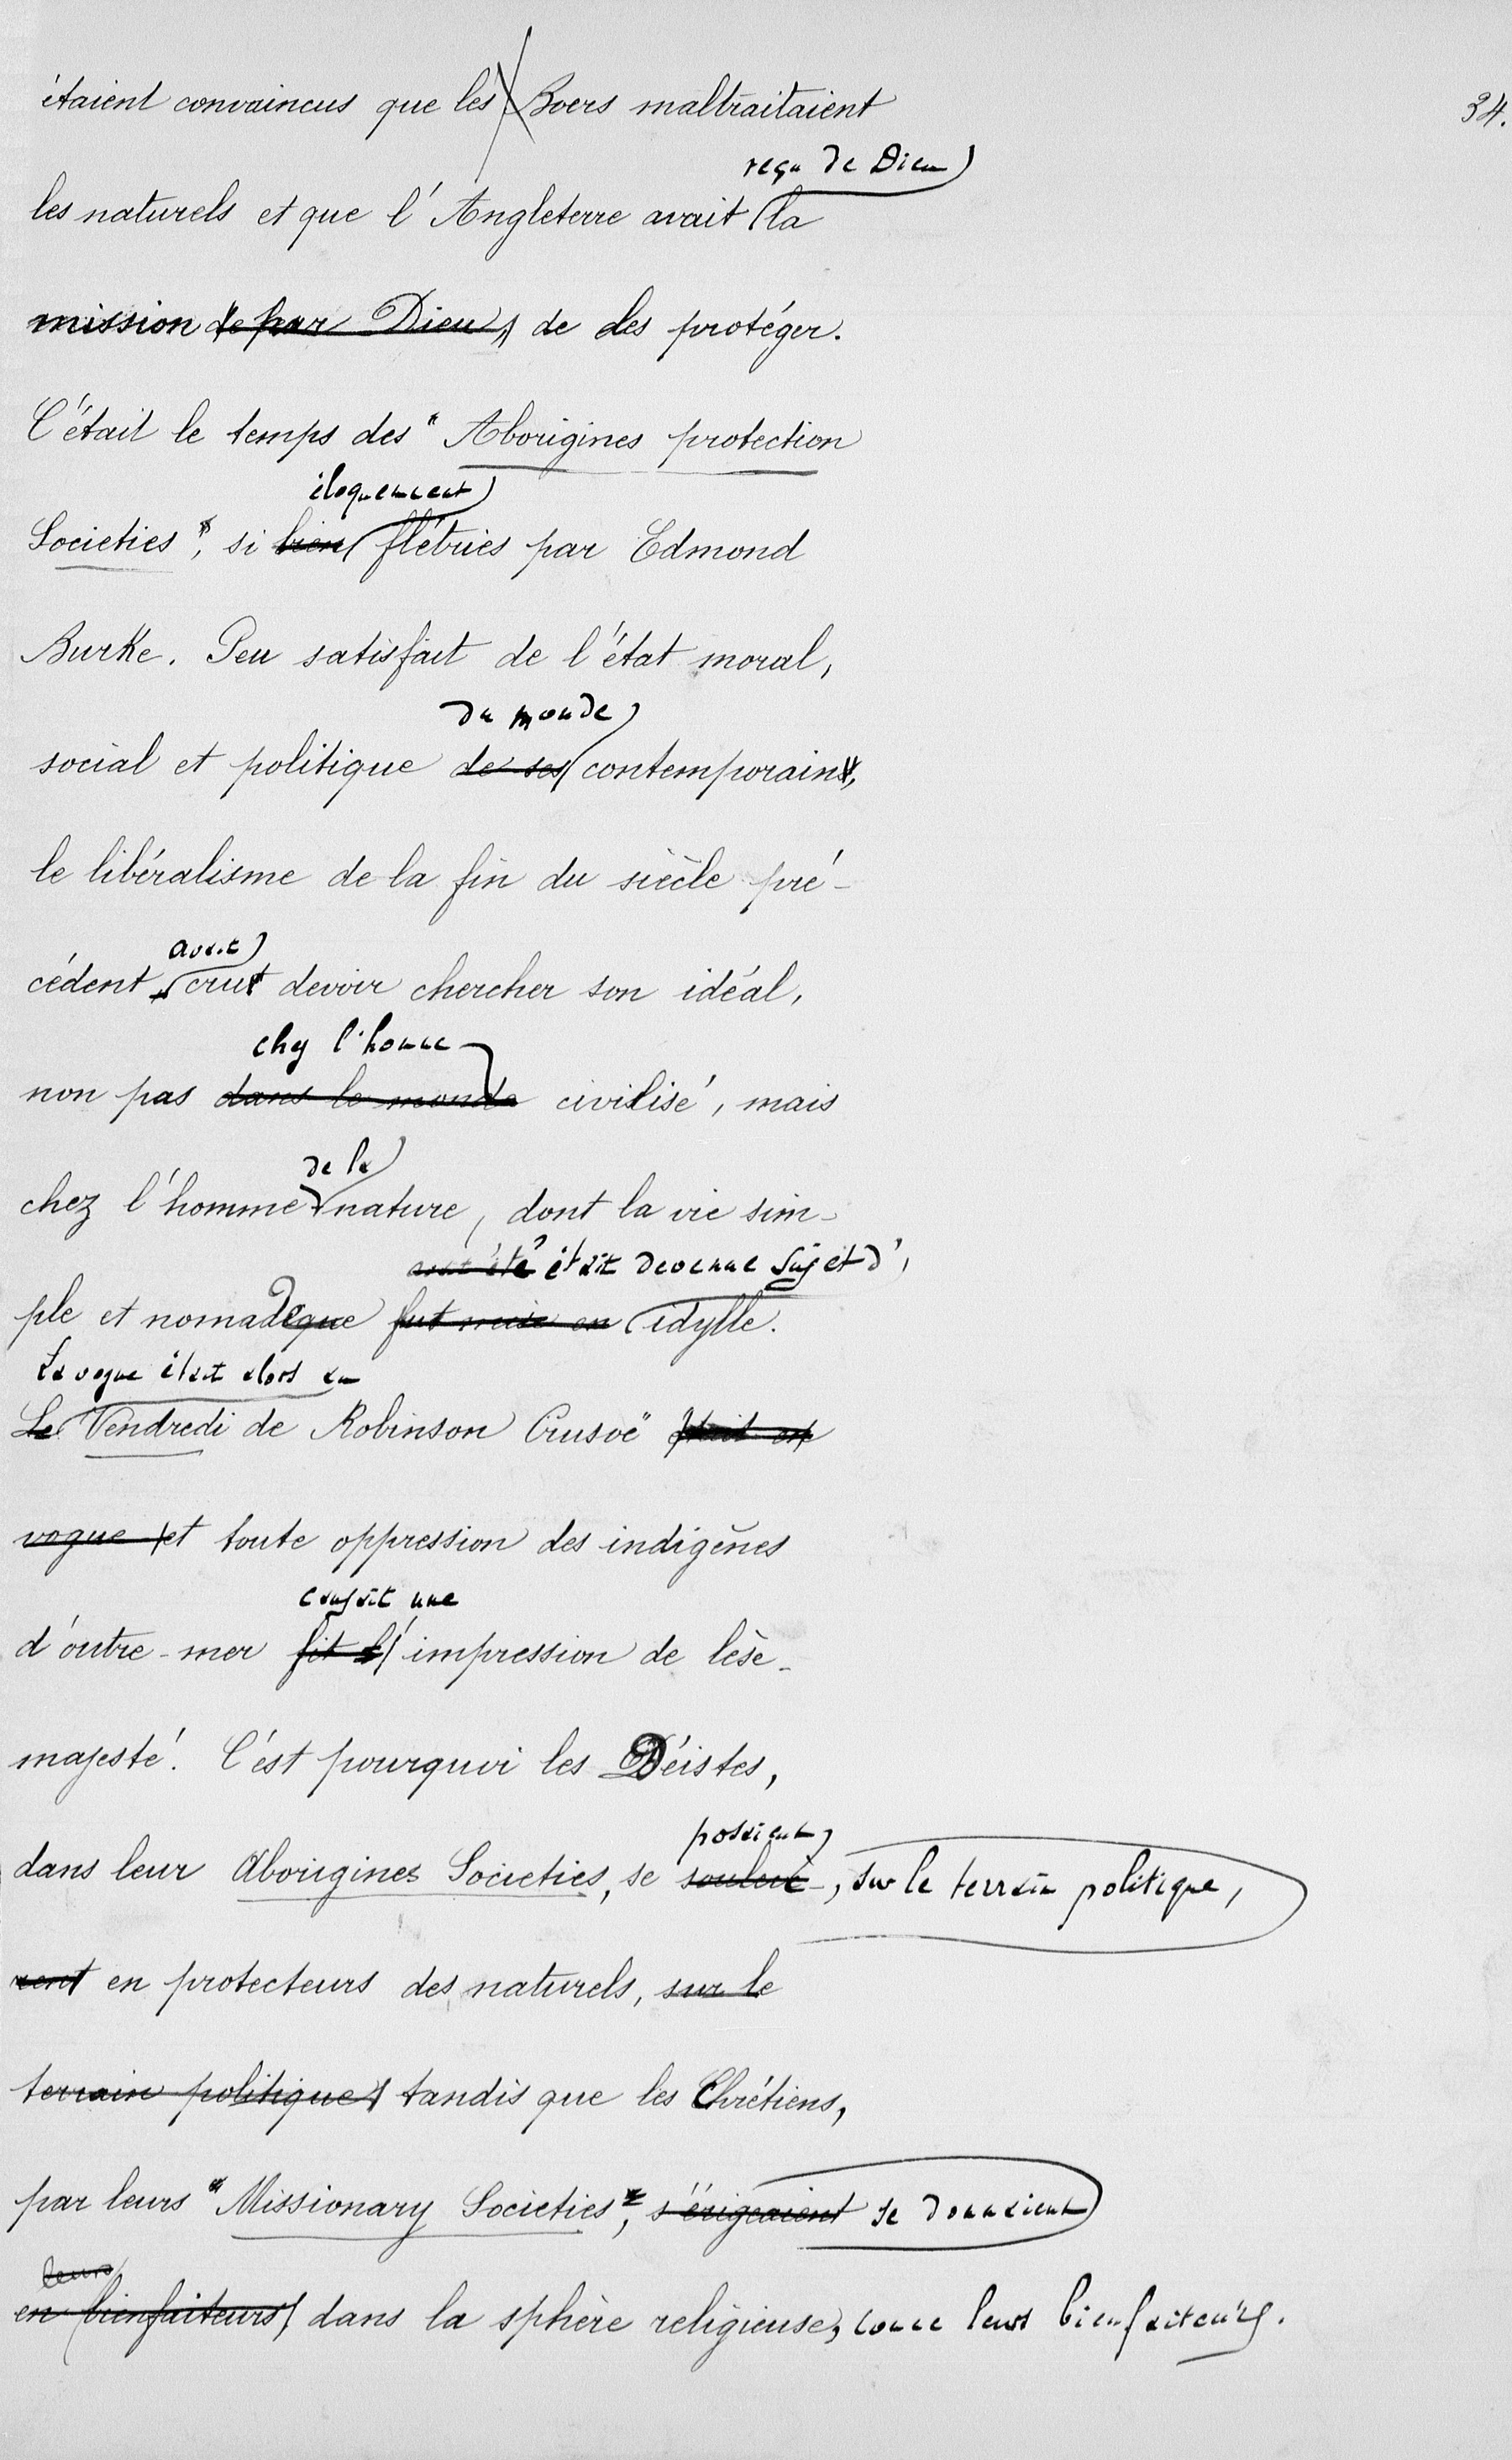 34.
étaient convaincus que les Boers maltraitaient
reçu de Dieu
les naturels et que l'Angleterre avait la
mission de par Dieu, de les protéger.
C'était le temps des "Aborigines protection
éloquemment
Societies", si bien flétries par Edmond
Burke. Peu satisfait de l'état moral,
du monde
social et politique de ses contemporains,
le libéralisme de la fin du siècle pré-
avait
cédent, crut devoir chercher son idéal,
chez l'homme
non pas dans le monde civilisé, mais
de la
chez l'homme nature, dont la vie sim-
avait été était devenue sujet d'
ple et nomade que fut mise en idylle.
La vogue était alors au
Le Vendredi de Robinson Crusoë" était en
vogue et toute oppression des indigènes
causait une
d'outre-mer fit l'impression de lèse-
majesté. C'est pourquoi les Déistes,
posaient
dans leur Aborigines Societies, se soulevè-, sur le terrain politique,
rent en protecteurs des naturels, sur le
terrain politique, tandis que les Chrétiens,
par leurs "Missionary Societies", s'érigeaient se donnaient
leurs
en bienfaiteurs, dans la sphère religieuse, comme leurs bienfaiteurs.